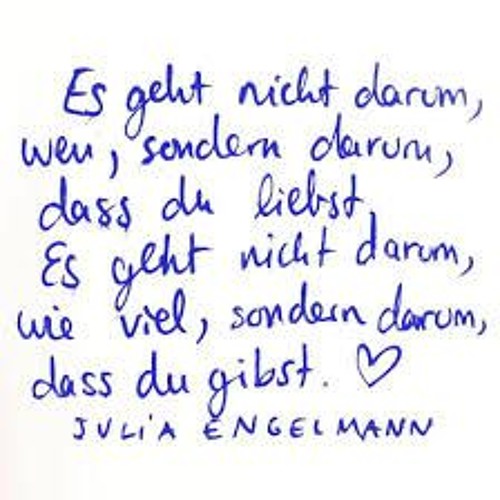 Es geht nicht darum,
wen, sondern darum,
dass du liebst.
Es geht nicht darum,
wie viel, sondern darum,
dass du gibst. ♡
JULiA ENGELMANN